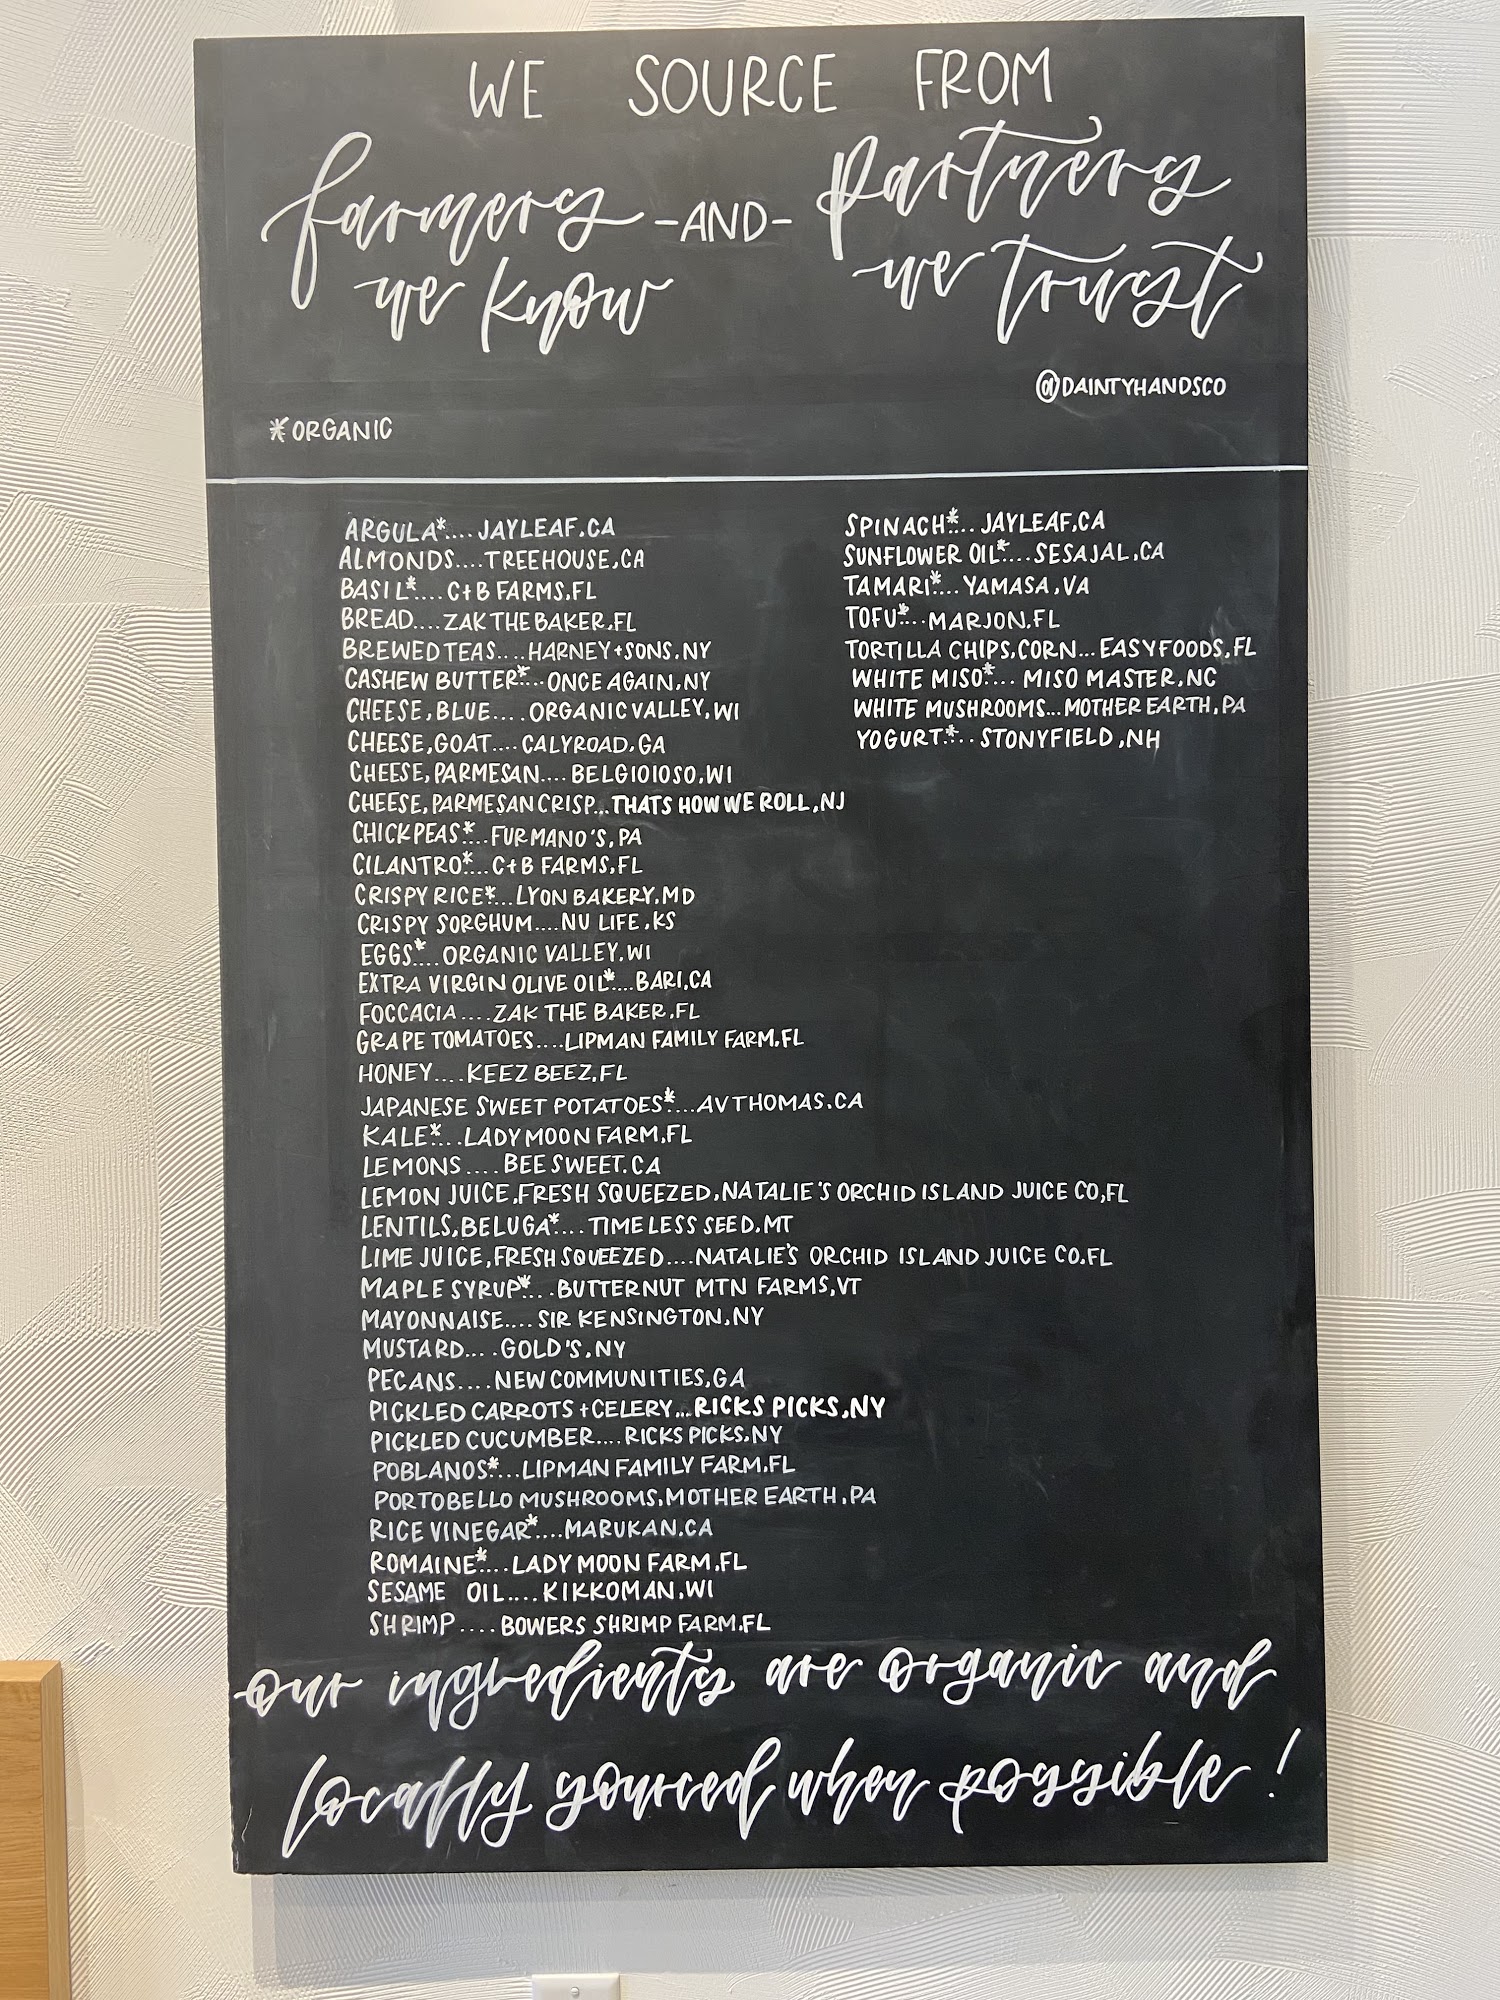 WE SOURCE FROM
farmers -AND- partners
we know we trust
@DAINTYHANDSCO
*ORGANIC
ARGULA*....JAYLEAF,CA
ALMONDS....TREEHOUSE,CA
BASIL*....C+B FARMS,FL
BREAD....ZAK THE BAKER,FL
BREWED TEAS....HARNEY+SONS,NY
CASHEW BUTTER*...ONCE AGAIN,NY
CHEESE,BLUE....ORGANIC VALLEY,WI
CHEESE,GOAT....CALYROAD,GA
CHEESE,PARMESAN....BELGIOIOSO,WI
CHEESE,PARMESAN CRISP...THATS HOW WE ROLL,NJ
CHICKPEAS*...FURMANO'S,PA
CILANTRO*...C+B FARMS,FL
CRISPY RICE*...LYON BAKERY,MD
CRISPY SORGHUM....NU LIFE,KS
EGGS*...ORGANIC VALLEY,WI
EXTRA VIRGIN OLIVE OIL*....BARI,CA
FOCCACIA....ZAK THE BAKER,FL
GRAPE TOMATOES....LIPMAN FAMILY FARM,FL
HONEY....KEEZ BEEZ,FL
JAPANESE SWEET POTATOES*...AV THOMAS,CA
KALE*...LADY MOON FARM,FL
LEMONS....BEE SWEET,CA
LEMON JUICE,FRESH SQUEEZED,NATALIE'S ORCHID ISLAND JUICE CO,FL
LENTILS,BELUGA*....TIMELESS SEED,MT
LIME JUICE,FRESH SQUEEZED....NATALIE'S ORCHID ISLAND JUICE CO,FL
MAPLE SYRUP*...BUTTERNUT MTN FARMS,VT
MAYONNAISE....SIR KENSINGTON,NY
MUSTARD....GOLD'S,NY
PECANS....NEW COMMUNITIES,GA
PICKLED CARROTS+CELERY...RICKS PICKS,NY
PICKLED CUCUMBER....RICKS PICKS,NY
POBLANOS*...LIPMAN FAMILY FARM,FL
PORTOBELLO MUSHROOMS,MOTHER EARTH,PA
RICE VINEGAR*....MARUKAN,CA
ROMAINE*...LADY MOON FARM,FL
SESAME OIL....KIKKOMAN,WI
SHRIMP....BOWERS SHRIMP FARM,FL
SPINACH*...JAYLEAF,CA
SUNFLOWER OIL*....SESAJAL,CA
TAMARI*...YAMASA,VA
TOFU*...MARJON,FL
TORTILLA CHIPS,CORN...EASYFOODS,FL
WHITE MISO*...MISO MASTER,NC
WHITE MUSHROOMS...MOTHER EARTH,PA
YOGURT*...STONYFIELD,NH
our ingredients are organic and
locally sourced when possible!